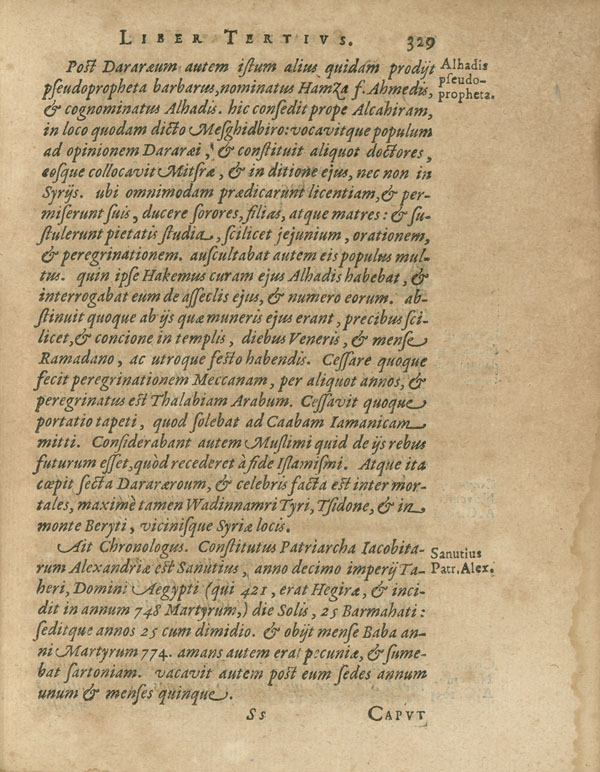 LIBER TERTIVS. 329
Post Dararæum autem istum alius quidam prodijt
pseudopropheta barbarus, nominatus Hamza f. Ahmedis,
& cognominatus Alhadis. hic consedit prope Alcahiram,
in loco quodam dicto Mesghidbiro: vocavitque populum
ad opinionem Dararæi, & constituit aliquot doctores,
eosque collocavit Mitsræ, & in ditione ejus, nec non in
Syrijs. ubi omnimodam prædicarunt licentiam, & per-
miserunt suis, ducere sorores, filias, atque matres: & su-
stulerunt pietatis studia, scilicet jejunium, orationem,
& peregrinationem. auscultabat autem eis populus mul-
tus. quin ipse Hakemus curam ejus Alhadis habebat, &
interrogabat eum de asseclis ejus, & numero eorum. ab-
stinuit quoque ab ijs quæ muneris ejus erant, precibus sci-
licet, & concione in templis, diebus Veneris, & mense
Ramadano, ac utroque festo habendis. Cessare quoque
fecit peregrinationem Meccanam, per aliquot annos, &
peregrinatus est Thalabiam Arabum. Cessavit quoque
portatio tapeti, quod solebat ad Caabam Iamanicam
mitti. Considerabant autem Muslimi quid de ijs rebus
futurum esset, quòd recederet à fide Islamismi. Atque ita
cœpit secta Dararæorum, & celebris facta est inter mor-
tales, maximè tamen Wadinnamri Tyri, Tsidone, & in
monte Beryti, vicinisque Syriæ locis.
Ait Chronologus. Constitutus Patriarcha Iacobita-
rum Alexandriæ est Sanutius, anno decimo imperij Ta-
heri, Domini Aegypti (qui 421, erat Hegiræ, & inci-
dit in annum 748 Martyrum,) die Solis, 25 Barmahati:
seditque annos 25 cum dimidio. & obijt mense Baba an-
ni Martyrum 774. amans autem erat pecuniæ, & sume-
bat sartoniam. vacavit autem post eum sedes annum
unum & menses quinque.
Ss CAPVT
Alhadis
pseudo-
propheta.
Sanutius
Patr. Alex.